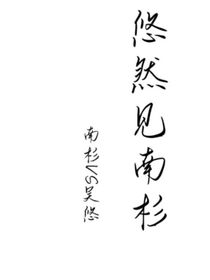 悠然见南杉
南杉VS吴悠